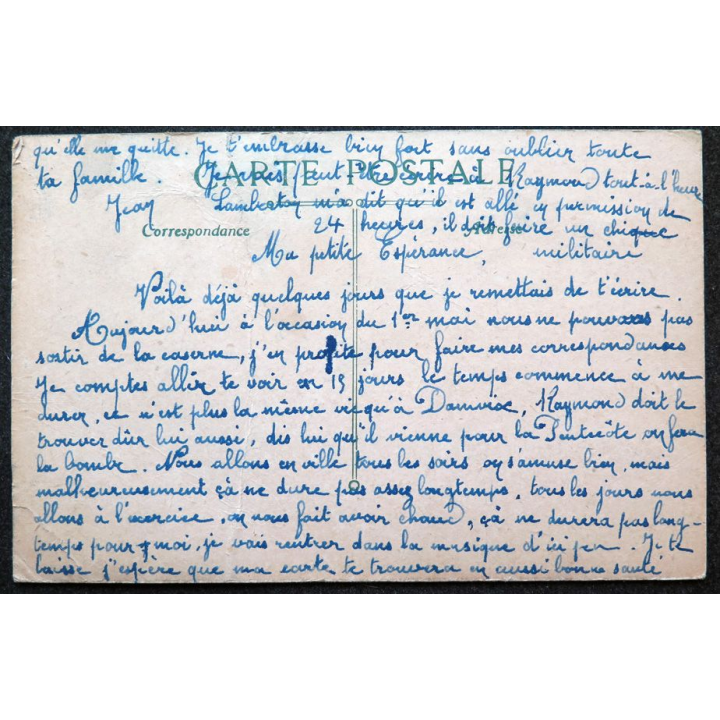 qu'elle me quitte. Je t'embrasse bien fort sans oublier toute
ta famille. Raymond tout-à-l'heure
CARTE POSTALE
Jean Lamberton m'a dit qu'il est allé en permission de
24 heures, il doit faire un chique
Correspondance Adresse
Ma petite Espérance, militaire
Voilà déjà quelques jours que je remettais de t'écrire.
Aujourd'hui à l'occasion du 1er mai nous ne pouvons pas
sortir de la caserne, j'en profite pour faire mes correspondances
Je comptes aller te voir en 15 jours le temps commence à me
durer, ce n'est plus la même vie qu'à Damvrix, Raymond doit le
trouver dûr lui aussi, dis lui qu'il vienne pour la Pentecôte on fera
la bombe. Nous allons en ville tous les soirs on s'amuse bien, mais
malheureusement çà ne dure pas assez longtemps, tous les jours nous
allons à l'exercice, on nous fait avoir chaud, çà ne durera pas long-
temps pour moi, je vais rentrer dans la musique d'ici peu. Je te
laisse j'espère que ma carte te trouvera en aussi bonne santé